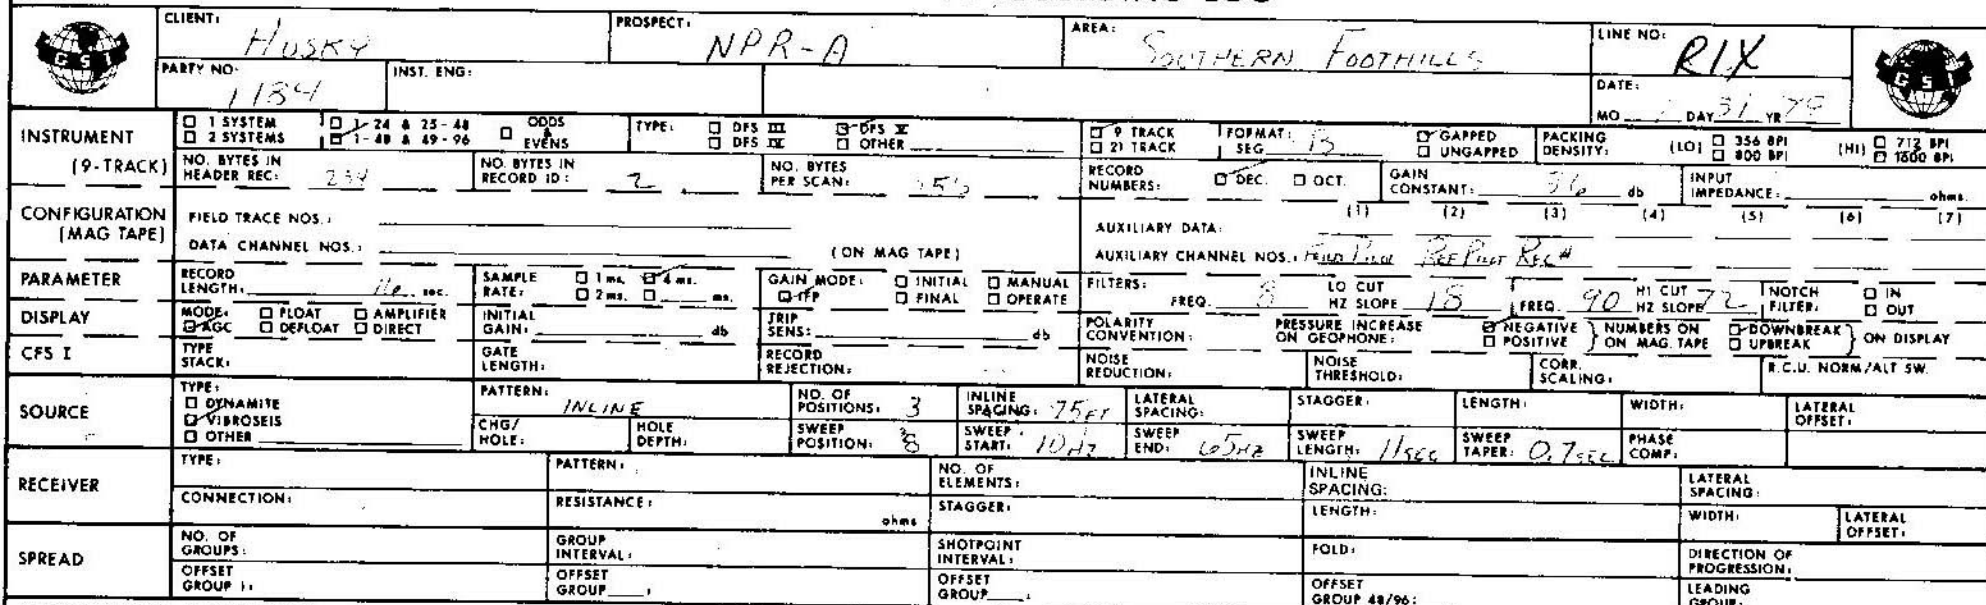 CLIENT: HUSKY PROSPECT: NPR-A AREA: SOUTHERN FOOTHILLS LINE NO: RIX
GSI
PARTY NO: 1184 INST. ENG: DATE:
MO DAY 31 YR 79
GSI
INSTRUMENT (9-TRACK)
□ 1 SYSTEM □ 1-24 & 25-48 □ ODDS & EVENS TYPE: □ DFS III □ DFS V □ 9 TRACK FORMAT: □ GAPPED PACKING (LO) □ 356 BPI (HI) □ 712 BPI
□ 2 SYSTEMS □ 1-48 & 49-96 □ DFS IV □ OTHER □ 21 TRACK SEG B □ UNGAPPED DENSITY: □ 800 BPI □ 1600 BPI
NO. BYTES IN HEADER REC: NO. BYTES IN RECORD ID: 2 NO. BYTES PER SCAN: RECORD NUMBERS: □ DEC. □ OCT. GAIN CONSTANT: 36 db INPUT IMPEDANCE: ohms.
CONFIGURATION (MAG TAPE)
FIELD TRACE NOS.: AUXILIARY DATA: (1) (2) (3) (4) (5) (6) (7)
DATA CHANNEL NOS.: (ON MAG TAPE) AUXILIARY CHANNEL NOS.: FIELD PILOT REF PILOT REC #
PARAMETER
RECORD LENGTH: 16 sec. SAMPLE RATE: □ 1 ms. □ 4 ms. □ 2 ms. □ ms. GAIN MODE: □ INITIAL □ MANUAL □ IFP □ FINAL □ OPERATE FILTERS: FREQ. 8 LO CUT HZ SLOPE 18 FREQ. 90 HI CUT HZ SLOPE 72 NOTCH FILTER: □ IN □ OUT
DISPLAY
MODE: □ FLOAT □ AMPLIFIER □ AGC □ DEFLOAT □ DIRECT INITIAL GAIN: db TRIP SENS: db POLARITY CONVENTION: PRESSURE INCREASE ON GEOPHONE: □ NEGATIVE □ POSITIVE } NUMBERS ON ON MAG. TAPE □ DOWNBREAK □ UPBREAK } ON DISPLAY
CFS I
TYPE STACK: GATE LENGTH: RECORD REJECTION: NOISE REDUCTION: NOISE THRESHOLD: CORR. SCALING: R.C.U. NORM/ALT SW.
SOURCE
TYPE: □ DYNAMITE □ VIBROSEIS □ OTHER PATTERN: INLINE NO. OF POSITIONS: 3 INLINE SPACING: 75 FT LATERAL SPACING: STAGGER: LENGTH: WIDTH: LATERAL OFFSET:
CHG/HOLE: HOLE DEPTH: SWEEP POSITION: 8 SWEEP START: 10 HZ SWEEP END: 65 HZ SWEEP LENGTH: 11 SEC SWEEP TAPER: 0.7 SEC PHASE COMP:
RECEIVER
TYPE: PATTERN: NO. OF ELEMENTS: INLINE SPACING: LATERAL SPACING:
CONNECTION: RESISTANCE: ohms STAGGER: LENGTH: WIDTH: LATERAL OFFSET:
SPREAD
NO. OF GROUPS: GROUP INTERVAL: SHOTPOINT INTERVAL: FOLD: DIRECTION OF PROGRESSION:
OFFSET GROUP 1: OFFSET GROUP : OFFSET GROUP : OFFSET GROUP 48/96: LEADING GROUP: